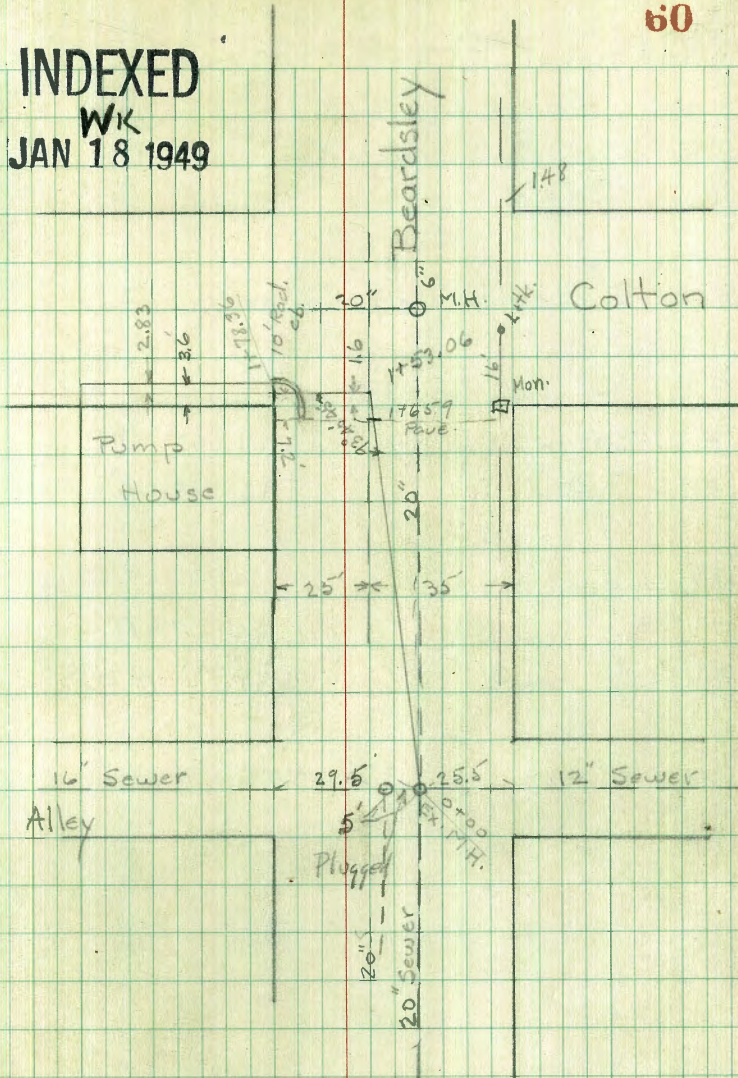 60
INDEXED
WK
JAN 18 1949
Beardsley
14.8
6"
20"
M.H.
Colton
2.83
3.6
1+78.36
10' Rad.
cb.
1.6
1+53.06
16'
Mon.
1+65.9
Pave.
7.2
Pump
House
20"
25'
35'
16" Sewer
29.5
25.5
12" Sewer
Alley
5'
0+00
Ex. M.H.
Plugged
20"
20" Sewer